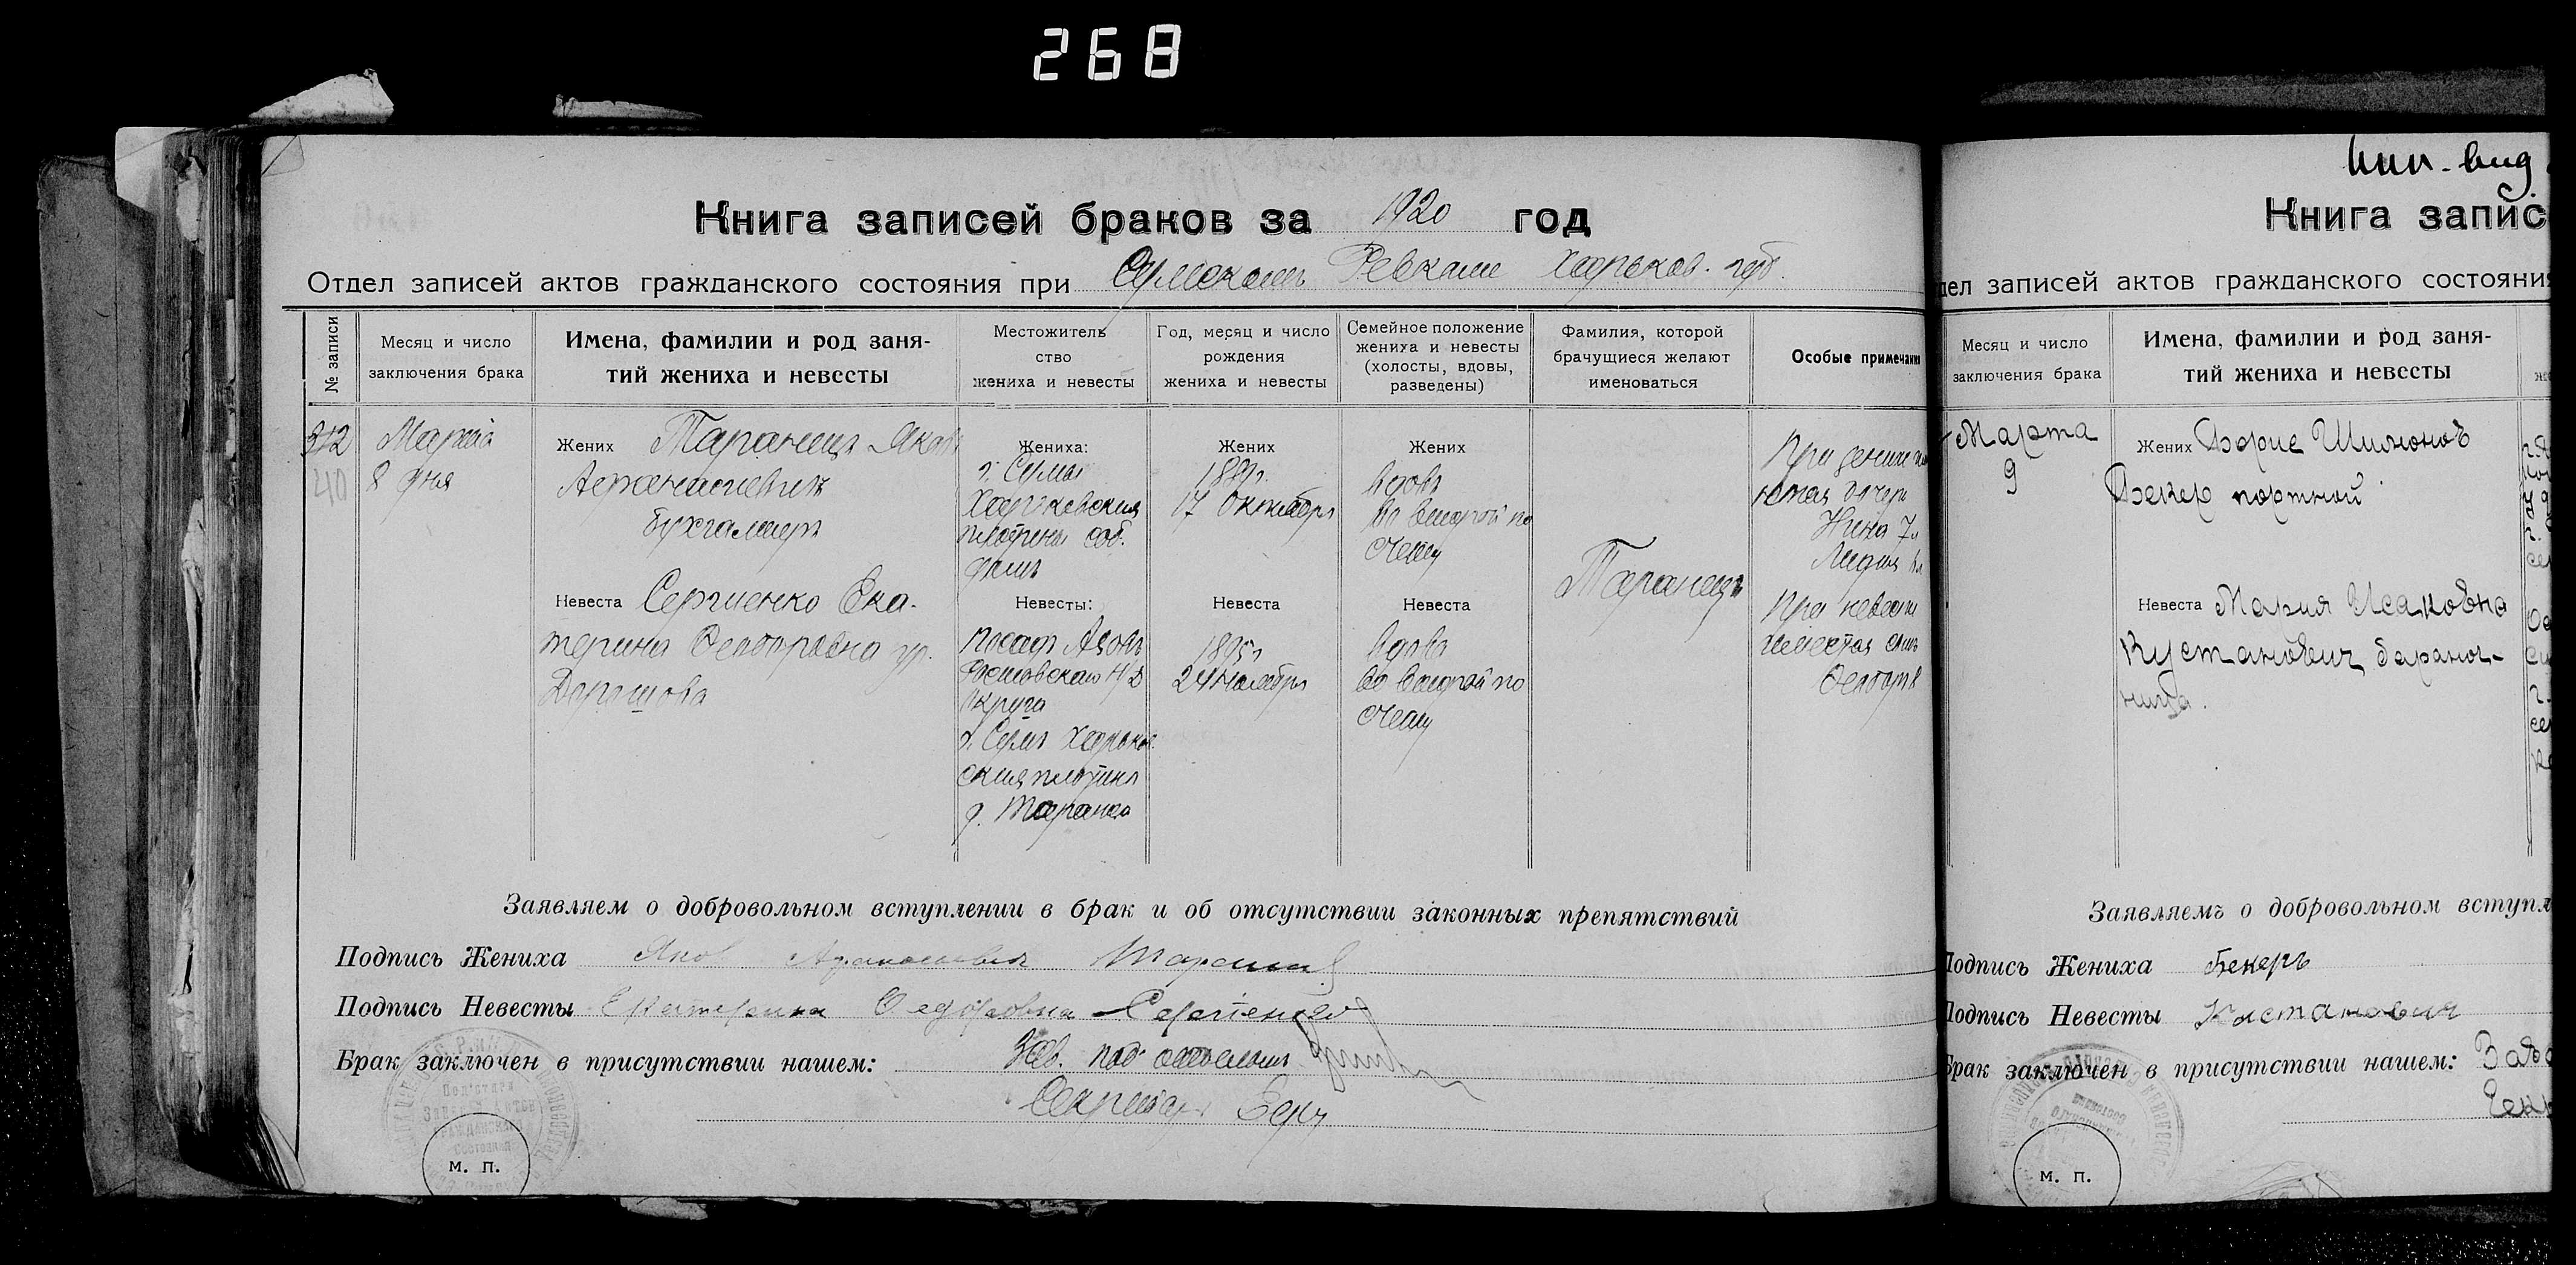 268
Книга записей браков за 1920 год
Отдел записей актов гражданского состояния при Ревкоме Харьков. губ.
№ записи
Месяц и число
заключения брака
Имена, фамилии и род заня-
тий жениха и невесты
Местожитель
ство
жениха и невесты
Год, месяц и число
рождения
жениха и невесты
Семейное положение
жениха и невесты
(холосты, вдовы,
разведены)
Фамилия, которой
брачущиеся желают
именоваться
Особые примечания
312
40
Марта
8 дня
Жених Таранец Яков
Афанасиевич
бухгалтер
Невеста Сергиенко Ека-
терина Феодоровна ур.
Жениха:
г. Сумы
Харьковская
плотина соб.
дом
Невесты:
посад Азов
Ростовскаго Н/Д
округа
г. Сумы Харьков
ская плотина
д. Таранца
Жених
1889г.
17 Октября
Невеста
1895г
24 Ноября
Жених
вдов
во второй по
счету
Невеста
вдова
во второй по
счету
Таранец
При женихе
дочери
Нина 7л
Лидия
При невесте
сын
Феодор
Заявляем о добровольном вступлении в брак и об отсутствии законных препятствий
Подпись Жениха Яков Афанасьевич Таранец
Подпись Невесты Екатерина Федоровна Сергиенко
Брак заключен в присутствии нашем: Зав. под отделом
Секретарь
м. п.
Книга запис
дел записей актов гражданского состояния
Месяц и число
заключения брака
Имена, фамилии и род заня-
тий жениха и невесты
Марта
9
Жених Борис Шимонов
Бекер портной
Невеста Мария Исаковна
Кустанович баранош-
ница.
Заявляемъ о добровольном вступл
Подпись Жениха Бекеръ
Подпись Невесты Кустанович
Брак заключен в присутствии нашем:
м. п.